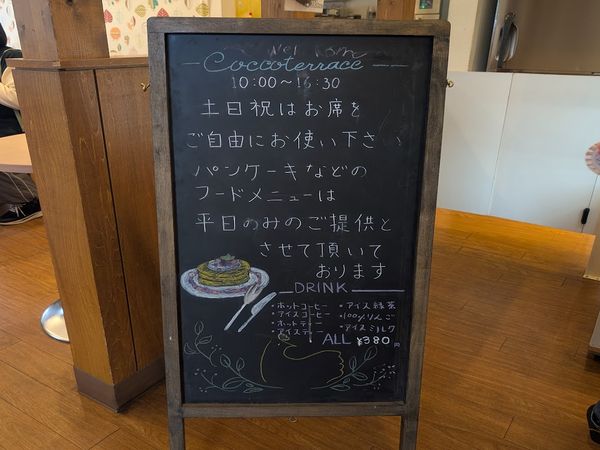 Welcome
Coccoterrace
10:00～16:30
土日祝はお席を
ご自由にお使い下さい
パンケーキなどの
フードメニューは
平日のみのご提供と
させて頂いて
おります
DRINK
・ホットコーヒー ・アイス緑茶
・アイスコーヒー ・100%りんご
・ホットティー ・アイスミルク
・アイスティー
ALL ¥380円